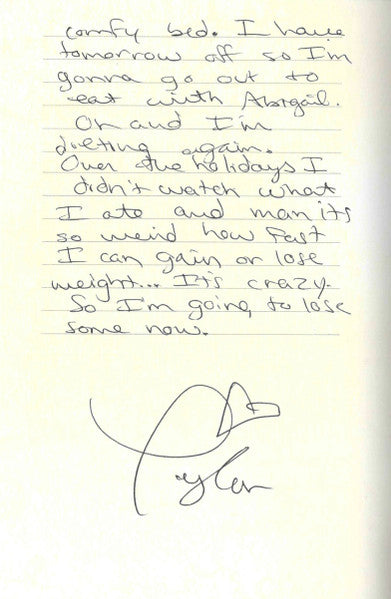 comfy bed. I have
tomorrow off so I'm
gonna go out to
eat with Abigail.
Oh and I'm
dieting again.
Over the holidays I
didn't watch what
I ate and man its
so weird how fast
I can gain or lose
weight... It's crazy.
So I'm going to lose
some now.
Taylor